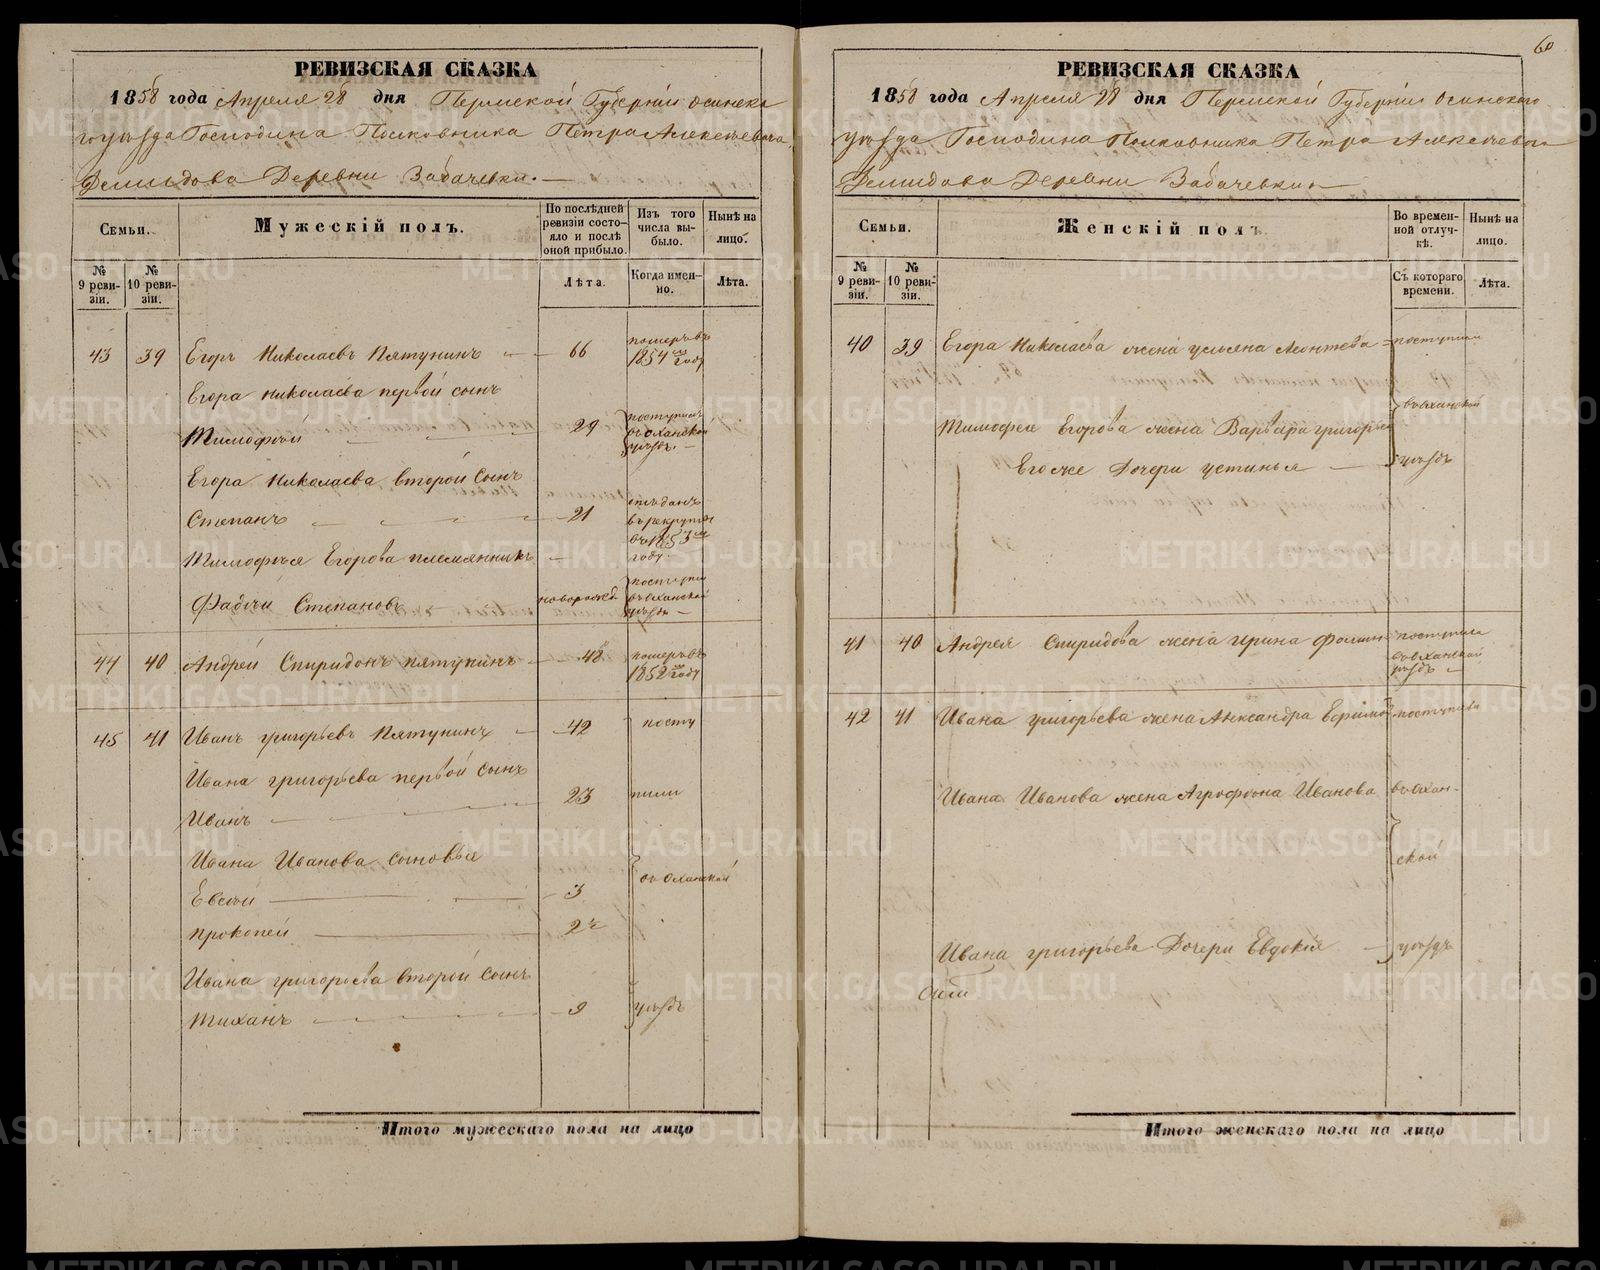 60
РЕВИЗСКАЯ СКАЗКА
1858 года Апреля 28 дня Пермской Губерніи Осинска
го уѣзда Господина Полковника Петра Алексѣевича
Демидова Деревни Забачевки.
Семьи.
Мужескій полъ.
По послѣдней ревизіи состояло и послѣ оной прибыло.
Изъ того числа выбыло.
Нынѣ на лицо.
№ 9 ревизіи.
№ 10 ревизіи.
Лѣта.
Когда именно.
Лѣта.
43 39 Егоръ Николаевъ Пятунинъ 66 померъ въ 1854 году
Егора Николаева первой сынъ
Тимофѣй 29 поступилъ въ Оханской уѣздъ
Егора Николаева второй сынъ
Степанъ 21 отъданъ въ рекруты въ 1853 году
Тимофѣя Егорова племянникъ
Фадѣй Степановъ новорожд. поступил въ Оханской уѣздъ
44 40 Андрей Спиридонъ Пятунинъ 48 померъ въ 1852 году
45 41 Иванъ григорьевъ Пятунинъ 42 посту
Ивана григорьева первой сынъ
Иванъ 23 пили
Ивана Иванова сыновья
Евсѣй 3 въ Оханской
Прокопей 2
Ивана григорьева второй сынъ
Тиханъ 9 уѣздъ
Итого мужескаго пола на лицо
РЕВИЗСКАЯ СКАЗКА
1858 года Апреля 28 дня Пермской Губерніи Осинского
уѣзда Господина Полковника Петра Алексѣевича
Демидова Деревни Забачевки
Семьи.
Женскій полъ.
Во временной отлучкѣ.
Нынѣ на лицо.
№ 9 ревизіи.
№ 10 ревизіи.
Съ котораго времени.
Лѣта.
40 39 Егора Николаева жена Ульяна Леонтева поступили
въ Оханской
Тимофея Егорова жена Варвара григорьева
Егоже Дочери устинья уѣздъ
41 40 Андрея Спиридова жена Ирина Фомин поступила въ Оханской уѣздъ
42 41 Ивана григорьева жена Александра Ефимов поступили
Ивана Иванова жена Агрофѣна Иванова въ Охан-
ской
Ивана григорьева Дочери Евдокія уѣздъ
Итого женскаго пола на лицо
METRIKI.GASO-URAL.RU